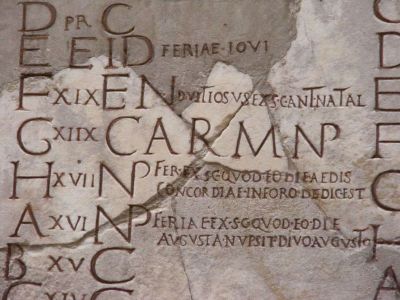 D PR C
E EID FERIAE·IOVI
F XIX EN DVITIOSVS·EX·S·C·ANT·NATAL
G XIIX CARM NP
H XVII NP FER·EX·S·C·QVOD·EO·DIE·AEDIS
CONCORDIAE·IN·FORO·DEDIC·EST
A XVI NP FERIAE·EX·S·C·QVOD·EO·DIE
AVGVSTA·NVPSIT·DIVO·AVGVSTO
B XV C
C XIV C
C
D
E
F